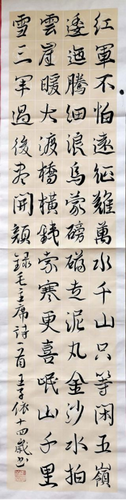 紅軍不怕遠征難萬水千山只等閑五嶺
逶迤騰細浪烏蒙磅礴走泥丸金沙水拍
雲崖暖大渡橋橫鐵索寒更喜岷山千里
雪三軍過後尽開顏 錄毛主席詩一首 王子依十四歲书